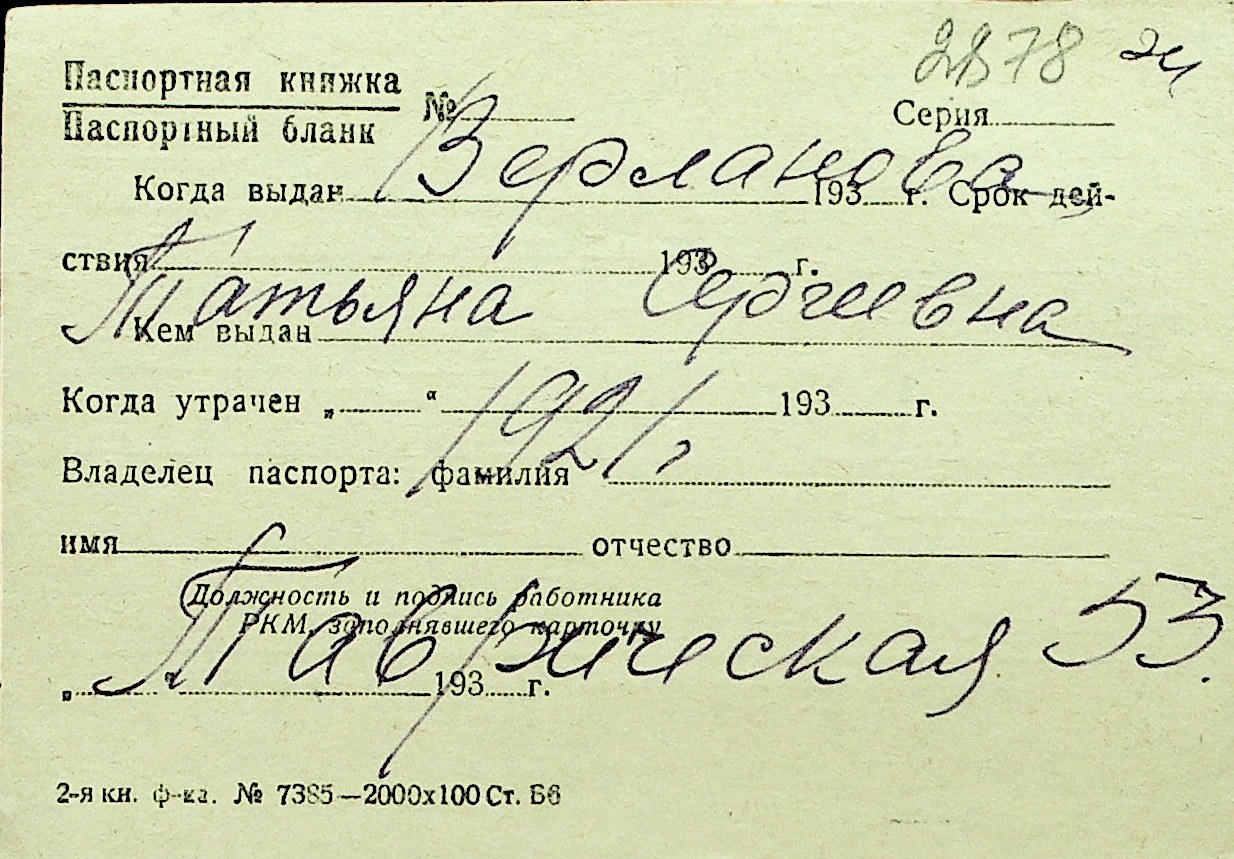 2878 эч
Паспортная книжка
Паспортный бланк
№ Серия
Верланова
Когда выдан 193 г. Срок дей-
ствия 193 г.
Татьяна Сергеевна
Кем выдан
Когда утрачен „ “ 193 г.
1921,
Владелец паспорта: фамилия
имя отчество
Должность и подпись работника
РКМ, заполнявшего карточку
Таврическая 53.
„ “ 193 г.
2-я кн. ф-ка. № 7385—2000х100 Ст. Б6